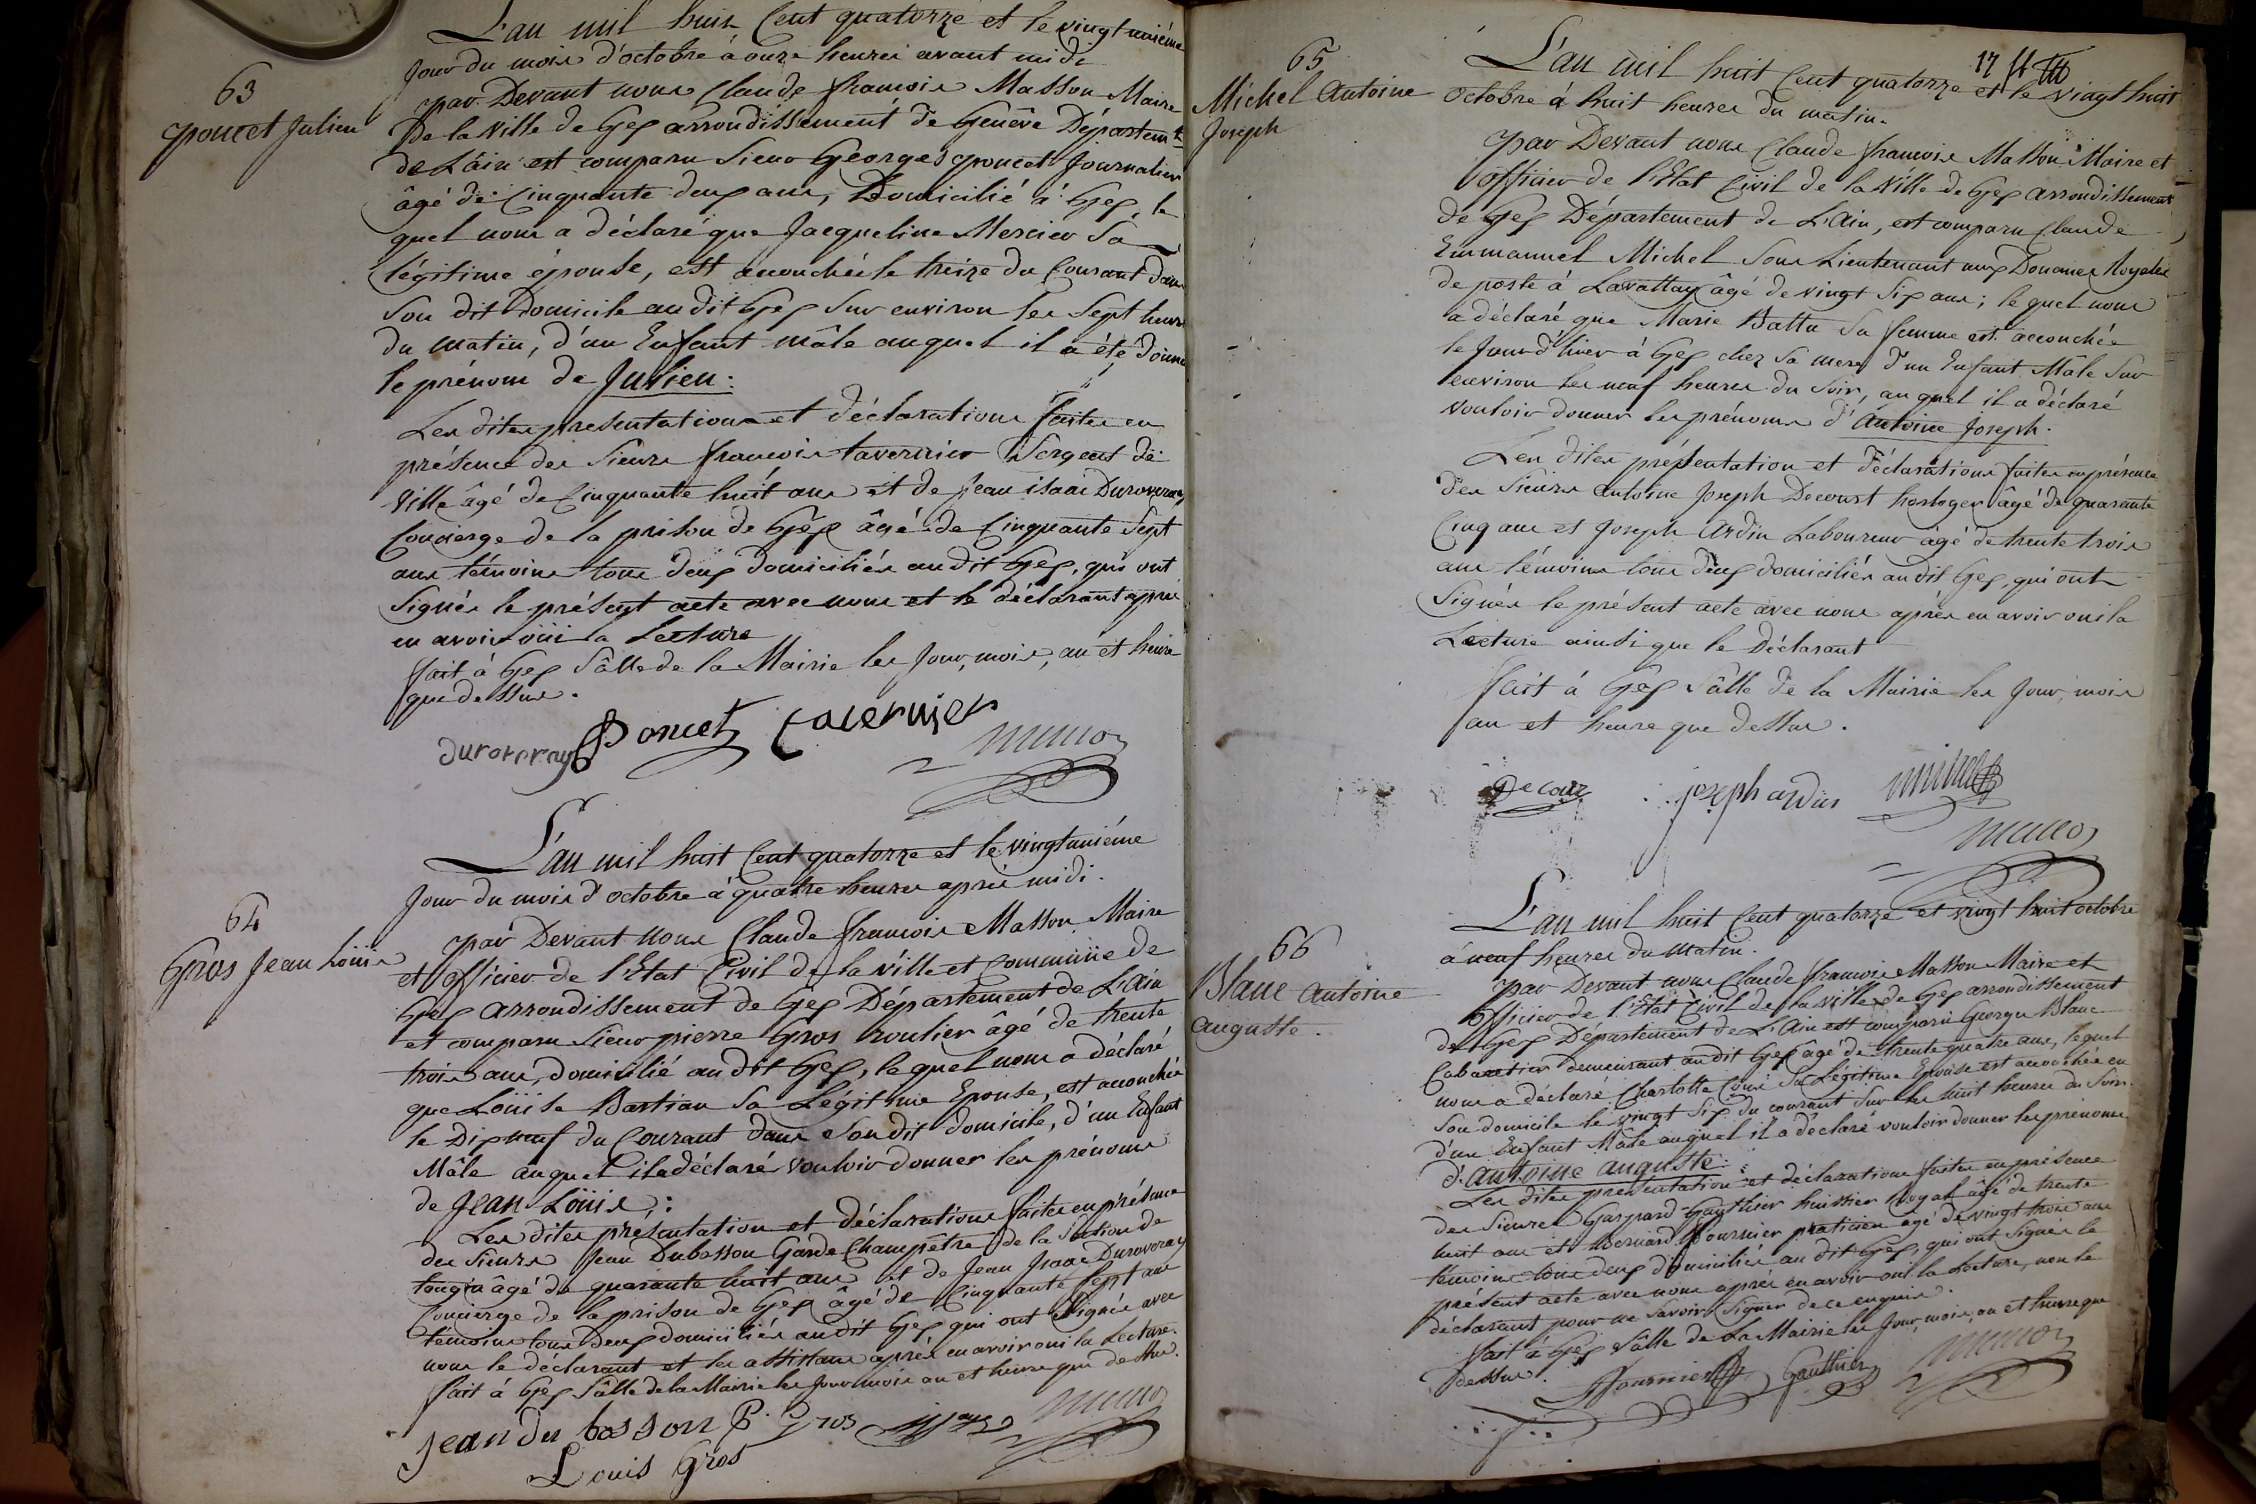 63
poncet Julien
L'an mil huit Cent quatorze et le vingt uniéme
Jour du mois d'octobre à onze heures avant midi
par Devant nous Claude françois Masson Maire
De la Ville de Gex arrondissement de Genève Départem.t
de L'ain est comparu Sieur Georges poncet Journalier
âgé de Cinquante deux ans, Domicilié à Gex, le
quel nous a déclaré que Jacqueline Mercier Sa
légitime épouse, est accouchée le treize du Courant dans
Son dit Domicile au dit Gex Sur environ les Sept heures
du matin, d'un Enfant mâle auquel il a été donné
le prénom de Julien :
Les dites presentations et déclarations faites en
présence des Sieurs françois tavernier Sergent de
Ville âgé de Cinquante huit ans et de Jean isaac Duroveray
Concierge de la prison de Gex âgé de Cinquante Sept
ans témoins tous deux domiciliés au dit Gex, qui ont
Signés le présent acte avec nous et le déclarant après
en avoir oüi la Lecture
fait à Gex Sâlle de la Mairie les Jour, mois, an et heure
que dessus.
duroveray Poncet tavernier
64
Gros Jean Loüis
L'an mil huit Cent quatorze et le vingtuniéme
Jour du mois d'octobre à quatre heures après midi.
par Devant nous Claude françois Masson Maire
et officier de l'Etat Civil de la ville et commune de
Gex arrondissement de Gex Département de L'Ain
et comparu Sieur pierre Gros roulier âgé de trente
trois ans, domicilié au dit Gex, le quel nous a déclaré
que Loüise Bastian Sa Légitime Epouse, est accouchée
le Dix neuf du Courant dans Son dit domicile, d'un Enfant
Mâle auquel il a déclaré vouloir donner les prénoms
de Jean Loüis ;
Les dites présentation et déclarations faites en présence
des Sieurs Jean Dubosson Garde Champêtre de la Section de
tougin âgé de quarante huit ans et de Jean Isaac Duroveray
Concierge de la prison de Gex âgé de Cinquante Sept ans
témoins tous Deux domiciliés au dit Gex qui ont Signés avec
nous le déclarant et les assistans après en avoir oui la Lecture.
fait à Gex Sâlle de la Mairie les Jour mois an et heure que dessus.
jean du bosson P. Gros
Louis Gros
17
65
Michel Antoine
Joseph
L'an mil huit Cent quatorze et le vingt huit
octobre à huit heures du matin.
par Devant nous Claude françois Masson Maire et
officier de l'Etat Civil de la Ville de Gex arrondissement
de Gex Département de L'Ain, est comparu Claude
Emmanuel Michel Sous Lieutenant aux Douanes Royales
de poste à Lavattay âgé de vingt Six ans ; le quel nous
a déclaré que Marie Battu Sa femme est accouchée
le Jour d'hier à Gex chez Sa mere d'un Enfant Mâle Sur
environ les neuf heures du Soir, au quel il a déclaré
vouloir donner les prénoms d'Antoine Joseph.
Les dites présentation et Déclarations faites en présence
des Sieurs Antoine Joseph Decourt horloger âgé de quarante
Cinq ans et Joseph Ardin Laboureur âgé de trente trois
ans témoins tous deux domiciliés au dit Gex, qui ont
Signés le présent acte avec nous après en avoir oui la
Lecture ainsi que le Déclarant
fait à Gex Sâlle de la Mairie les Jour, mois
an et heure que dessus.
joseph ardin
66
Blanc antoine
auguste.
L'an mil huit Cent quatorze et vingt huit octobre
à neuf heures du matin.
par Devant nous Claude françois Masson Maire et
officier de l'Etat Civil de la ville de Gex arrondissement
de Gex Département de L'Ain est comparu George Blanc
Cabaretier demeurant au dit Gex âgé de trente quatre ans, lequel
nous a déclaré Charlotte Sa Légitime Epouse est accouchée en
Son domicile le vingt Six du courant Sur les huit heures du Soir
d'un Enfant Mâle auquel il a déclaré vouloir donner les prénoms
d'antoine auguste :
Les dites presentation et déclarations faites en présence
des Sieurs Gaspard Gauthier huissier Royal âgé de trente
huit ans et Bernard fournier praticien âgé de vingt trois ans
témoins tous deux domiciliés au dit Gex, qui ont Signés le
présent acte avec nous après en avoir oui la Lecture, non le
déclarant pour ne Savoir Signer de ce enquis.
fait à Gex Sâlle de La Mairie les Jour, mois, an et heure que
dessus.
fournier Gauthier